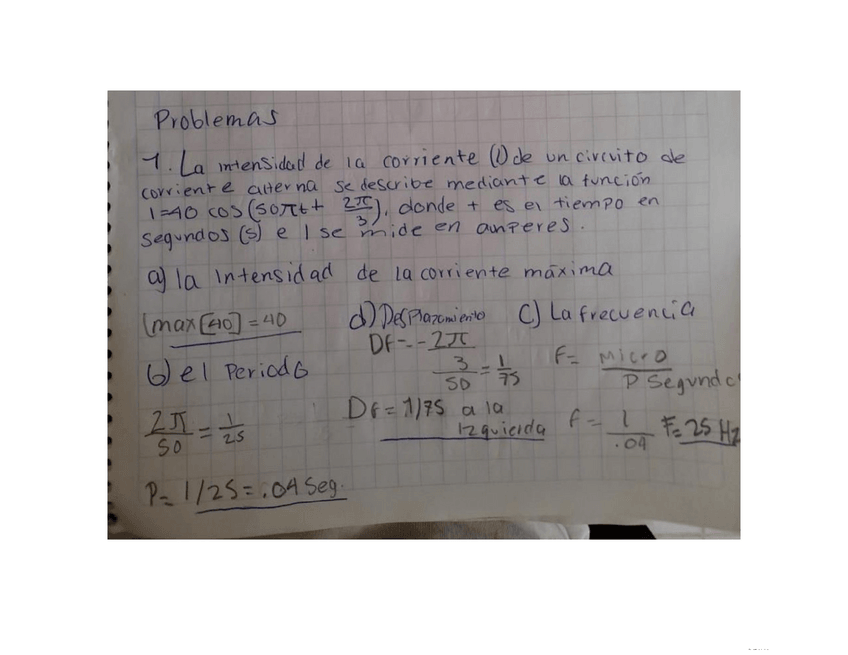 Problemas
1. La intensidad de la corriente (I) de un circuito de
corriente alterna se describe mediante la función
I=40 cos(50πt + 2π/3), donde t es el tiempo en
segundos (s) e I se mide en amperes.
a) la intensidad de la corriente máxima
Imax[40] = 40
b) el Periodo
2π/50 = 1/25
P= 1/25 = .04 Seg.
d) Desplazamiento
Df = - 2π/3/50 = 1/75
Df = 1/75 a la
Izquierda
c) La frecuencia
f= /P Segundo
f = 1/.04 F= 25 Hz